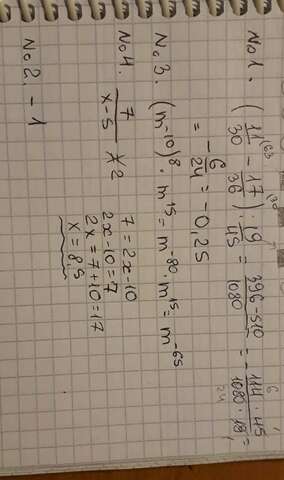 No 1. (11/30 - 17/36) : 19/45 = 396-510/1080 = - 114·45/1080·19 =
= - 6/24 = -0,25
No 3. (m-10)⁸ · m¹⁵ = m⁻⁸⁰ · m¹⁵ = m⁻⁶⁵
No 4. 7/x-5 2 7 = 2x-10
2x-10=7
2x=7+10=17
x=8.5
No 2. - 1